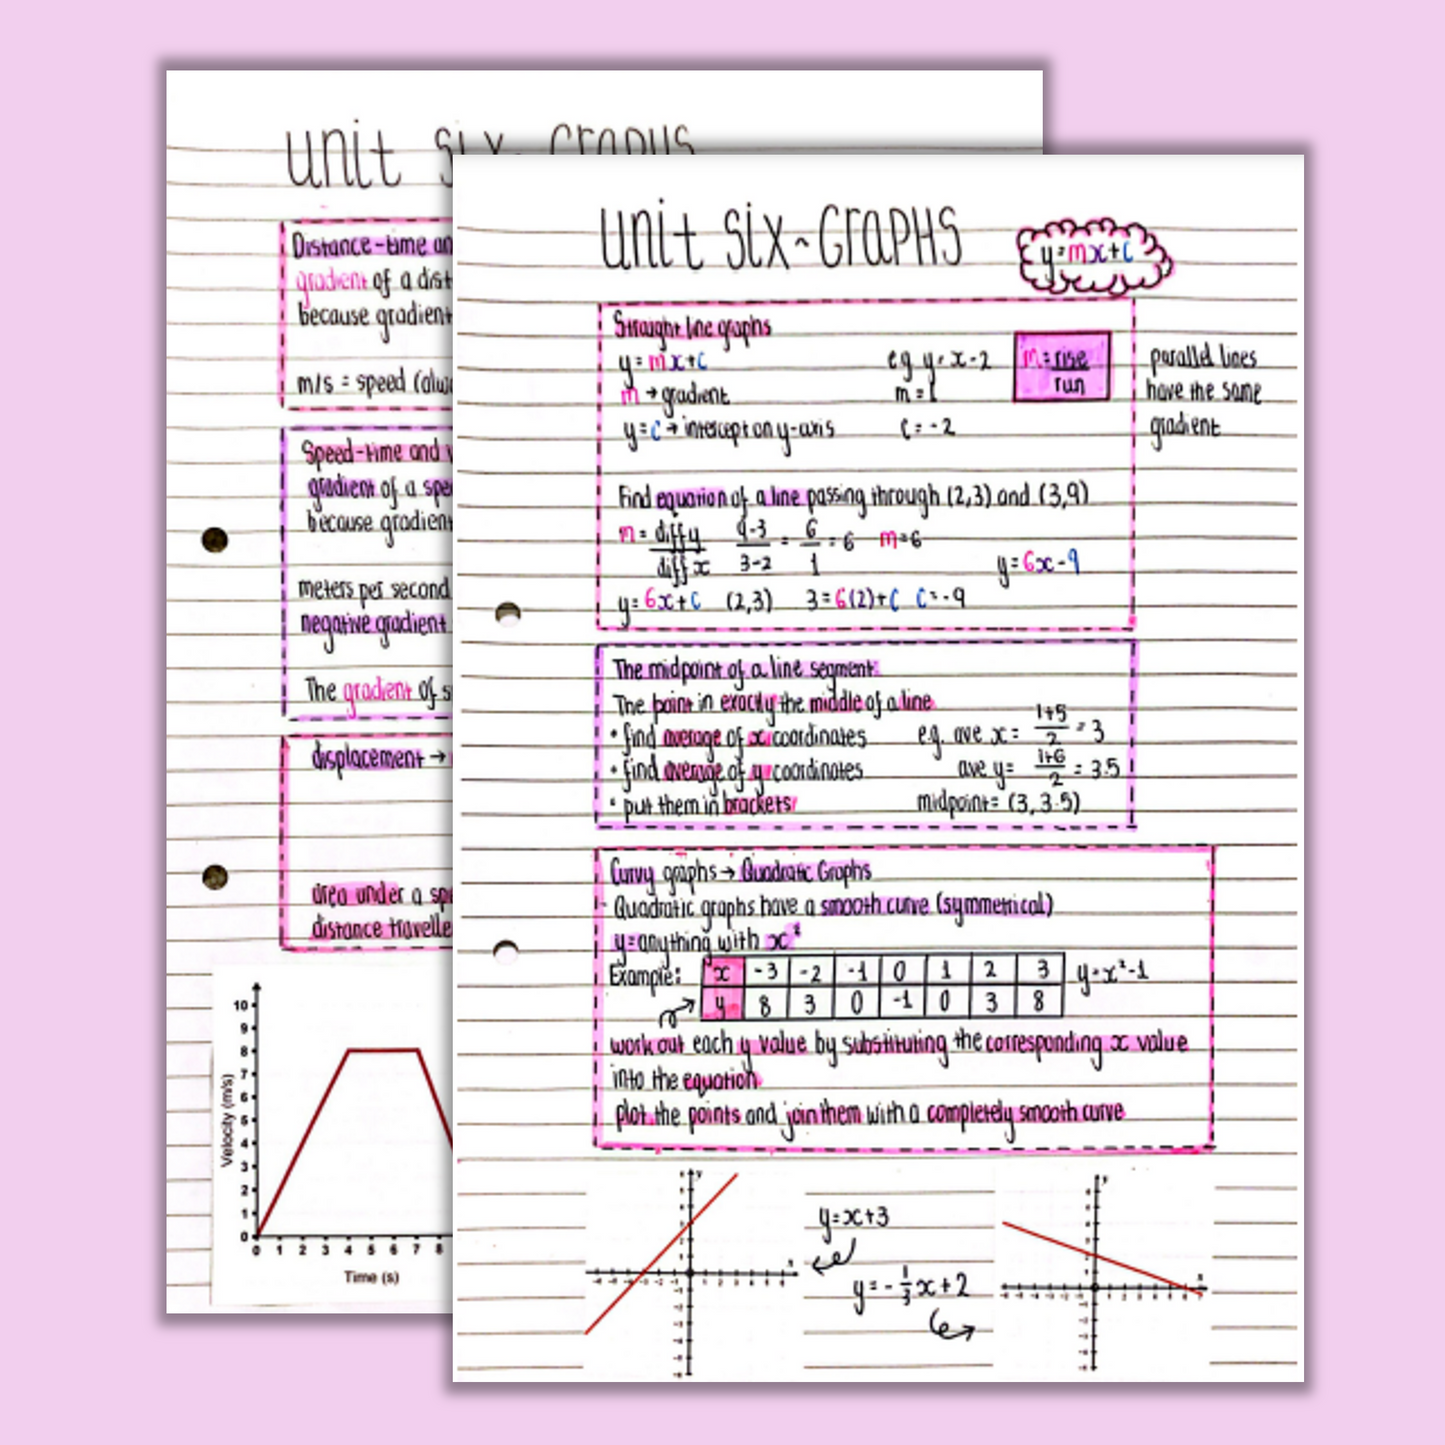 unit six - Graphs
Distance-time an
gradient of a dist
because gradient
m/s = speed (alwa
Speed-time and v
gradient of a spe
because gradient
meters per second
negative gradient
The gradient of s
displacement →
area under a spe
distance travelle
Velocity (m/s)
10
9
8
7
6
5
4
3
2
1
0
0 1 2 3 4 5 6 7 8
Time (s)
unit six ~ GraPHS
y=mx+c
Straight line graphs
y=mx+c e.g. y=x-2 m=rise/run
m → gradient m=1
y=c → intercept on y-axis c=-2
parallel lines
have the same
gradient
Find equation of a line passing through (2,3) and (3,9)
m = diff y/diff x 9-3/3-2 = 6/1 = 6 m=6
y=6x-9
y=6x+c (2,3) 3=6(2)+c c=-9
The midpoint of a line segment:
The point in exactly the middle of a line
• find average of x coordinates e.g. ave x = 1+5/2 = 3
• find average of y coordinates ave y = 1+6/2 = 3.5
• put them in brackets midpoint = (3, 3.5)
Curvy graphs → Quadratic Graphs
- Quadratic graphs have a smooth curve (symmetrical)
y=anything with x²
Example: x -3 -2 -1 0 1 2 3 y=x²-1
y 8 3 0 -1 0 3 8
work out each y value by substituting the corresponding x value
into the equation
plot the points and join them with a completely smooth curve
y=x+3
y=-1/3x+2